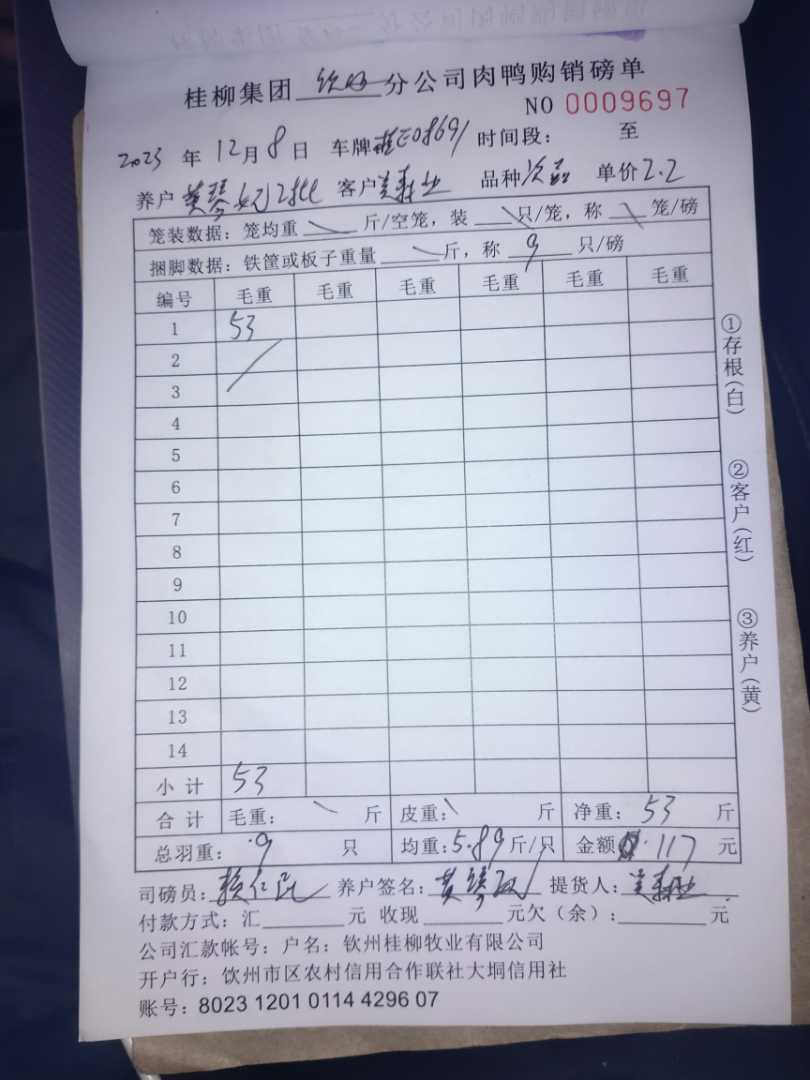 桂柳集团 分公司肉鸭购销磅单
NO 0009697
2023 年 12 月 8 日 车牌 时间段： 至
养户 黄琴 客户 品种 次品 单价 2.2
笼装数据：笼均重 斤/空笼，装 只/笼，称 笼/磅
捆脚数据：铁筐或板子重量 斤，称 9 只/磅
编号 毛重 毛重 毛重 毛重 毛重 毛重
1 53
2
3
4
5
6
7
8
9
10
11
12
13
14
小计 53
合计 毛重： 斤 皮重： 斤 净重： 53 斤
总羽重： 9 只 均重：5.89 斤/只 金额 117 元
司磅员： 养户签名： 黄琴 提货人：
付款方式：汇 元 收现 元欠（余）： 元
公司汇款帐号：户名：钦州桂柳牧业有限公司
开户行：饮州市区农村信用合作联社大垌信用社
账号：8023 1201 0114 4296 07
①存根（白）
②客户（红）
③养户（黄）